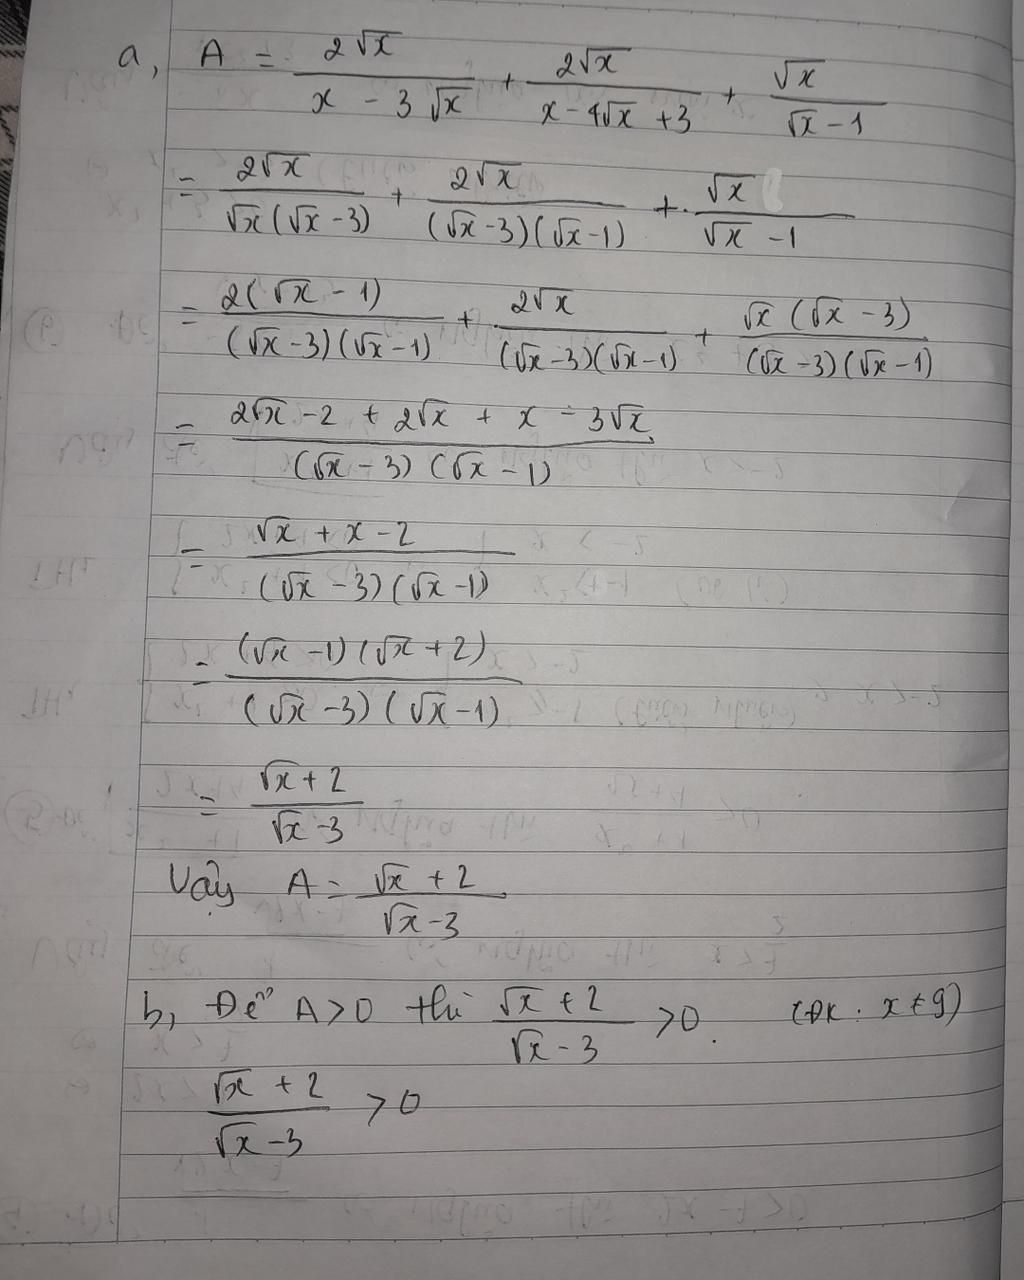 a, A = 2√x / (x - 3√x) + 2√x / (x - 4√x + 3) + √x / (√x - 1)
= 2√x / (√x(√x - 3)) + 2√x / ((√x - 3)(√x - 1)) + √x / (√x - 1)
= 2(√x - 1) / ((√x - 3)(√x - 1)) + 2√x / ((√x - 3)(√x - 1)) + √x(√x - 3) / ((√x - 3)(√x - 1))
= (2√x - 2 + 2√x + x - 3√x) / ((√x - 3)(√x - 1))
= (√x + x - 2) / ((√x - 3)(√x - 1))
= (√x - 1)(√x + 2) / ((√x - 3)(√x - 1))
= (√x + 2) / (√x - 3)
Vậy A = (√x + 2) / (√x - 3)
b, Để A > 0 thì (√x + 2) / (√x - 3) > 0. (ĐK: x ≠ 9)
(√x + 2) / (√x - 3) > 0